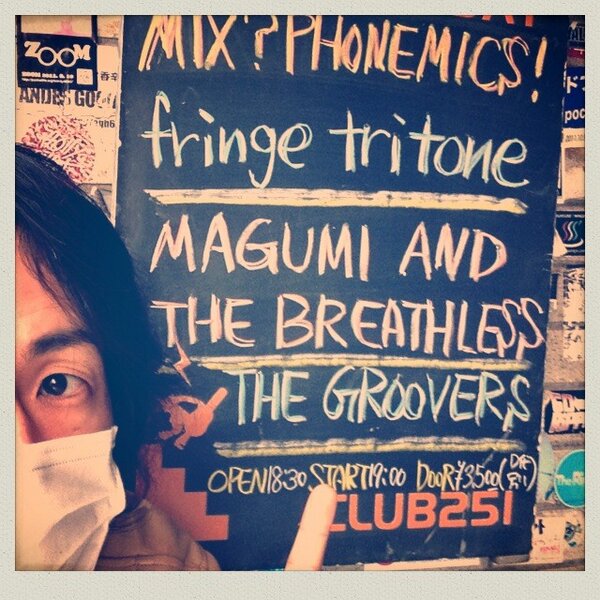 MIX?PHONEMICS!
fringe tritone
MAGUMI AND
THE BREATHLESS
THE GROOVERS
OPEN18:30 START19:00 DOOR¥3500(D代別)
CLUB251
ZOOM